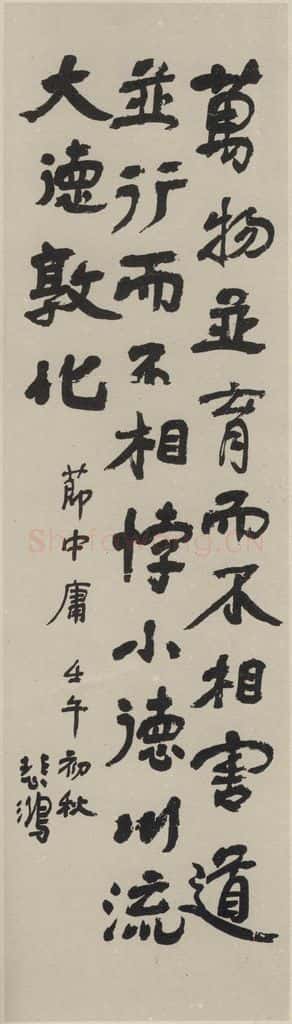 萬物並育而不相害道
並行而不相悖小德川流
大德敦化
節中庸 壬午初秋
悲鴻
Shufawang.CN